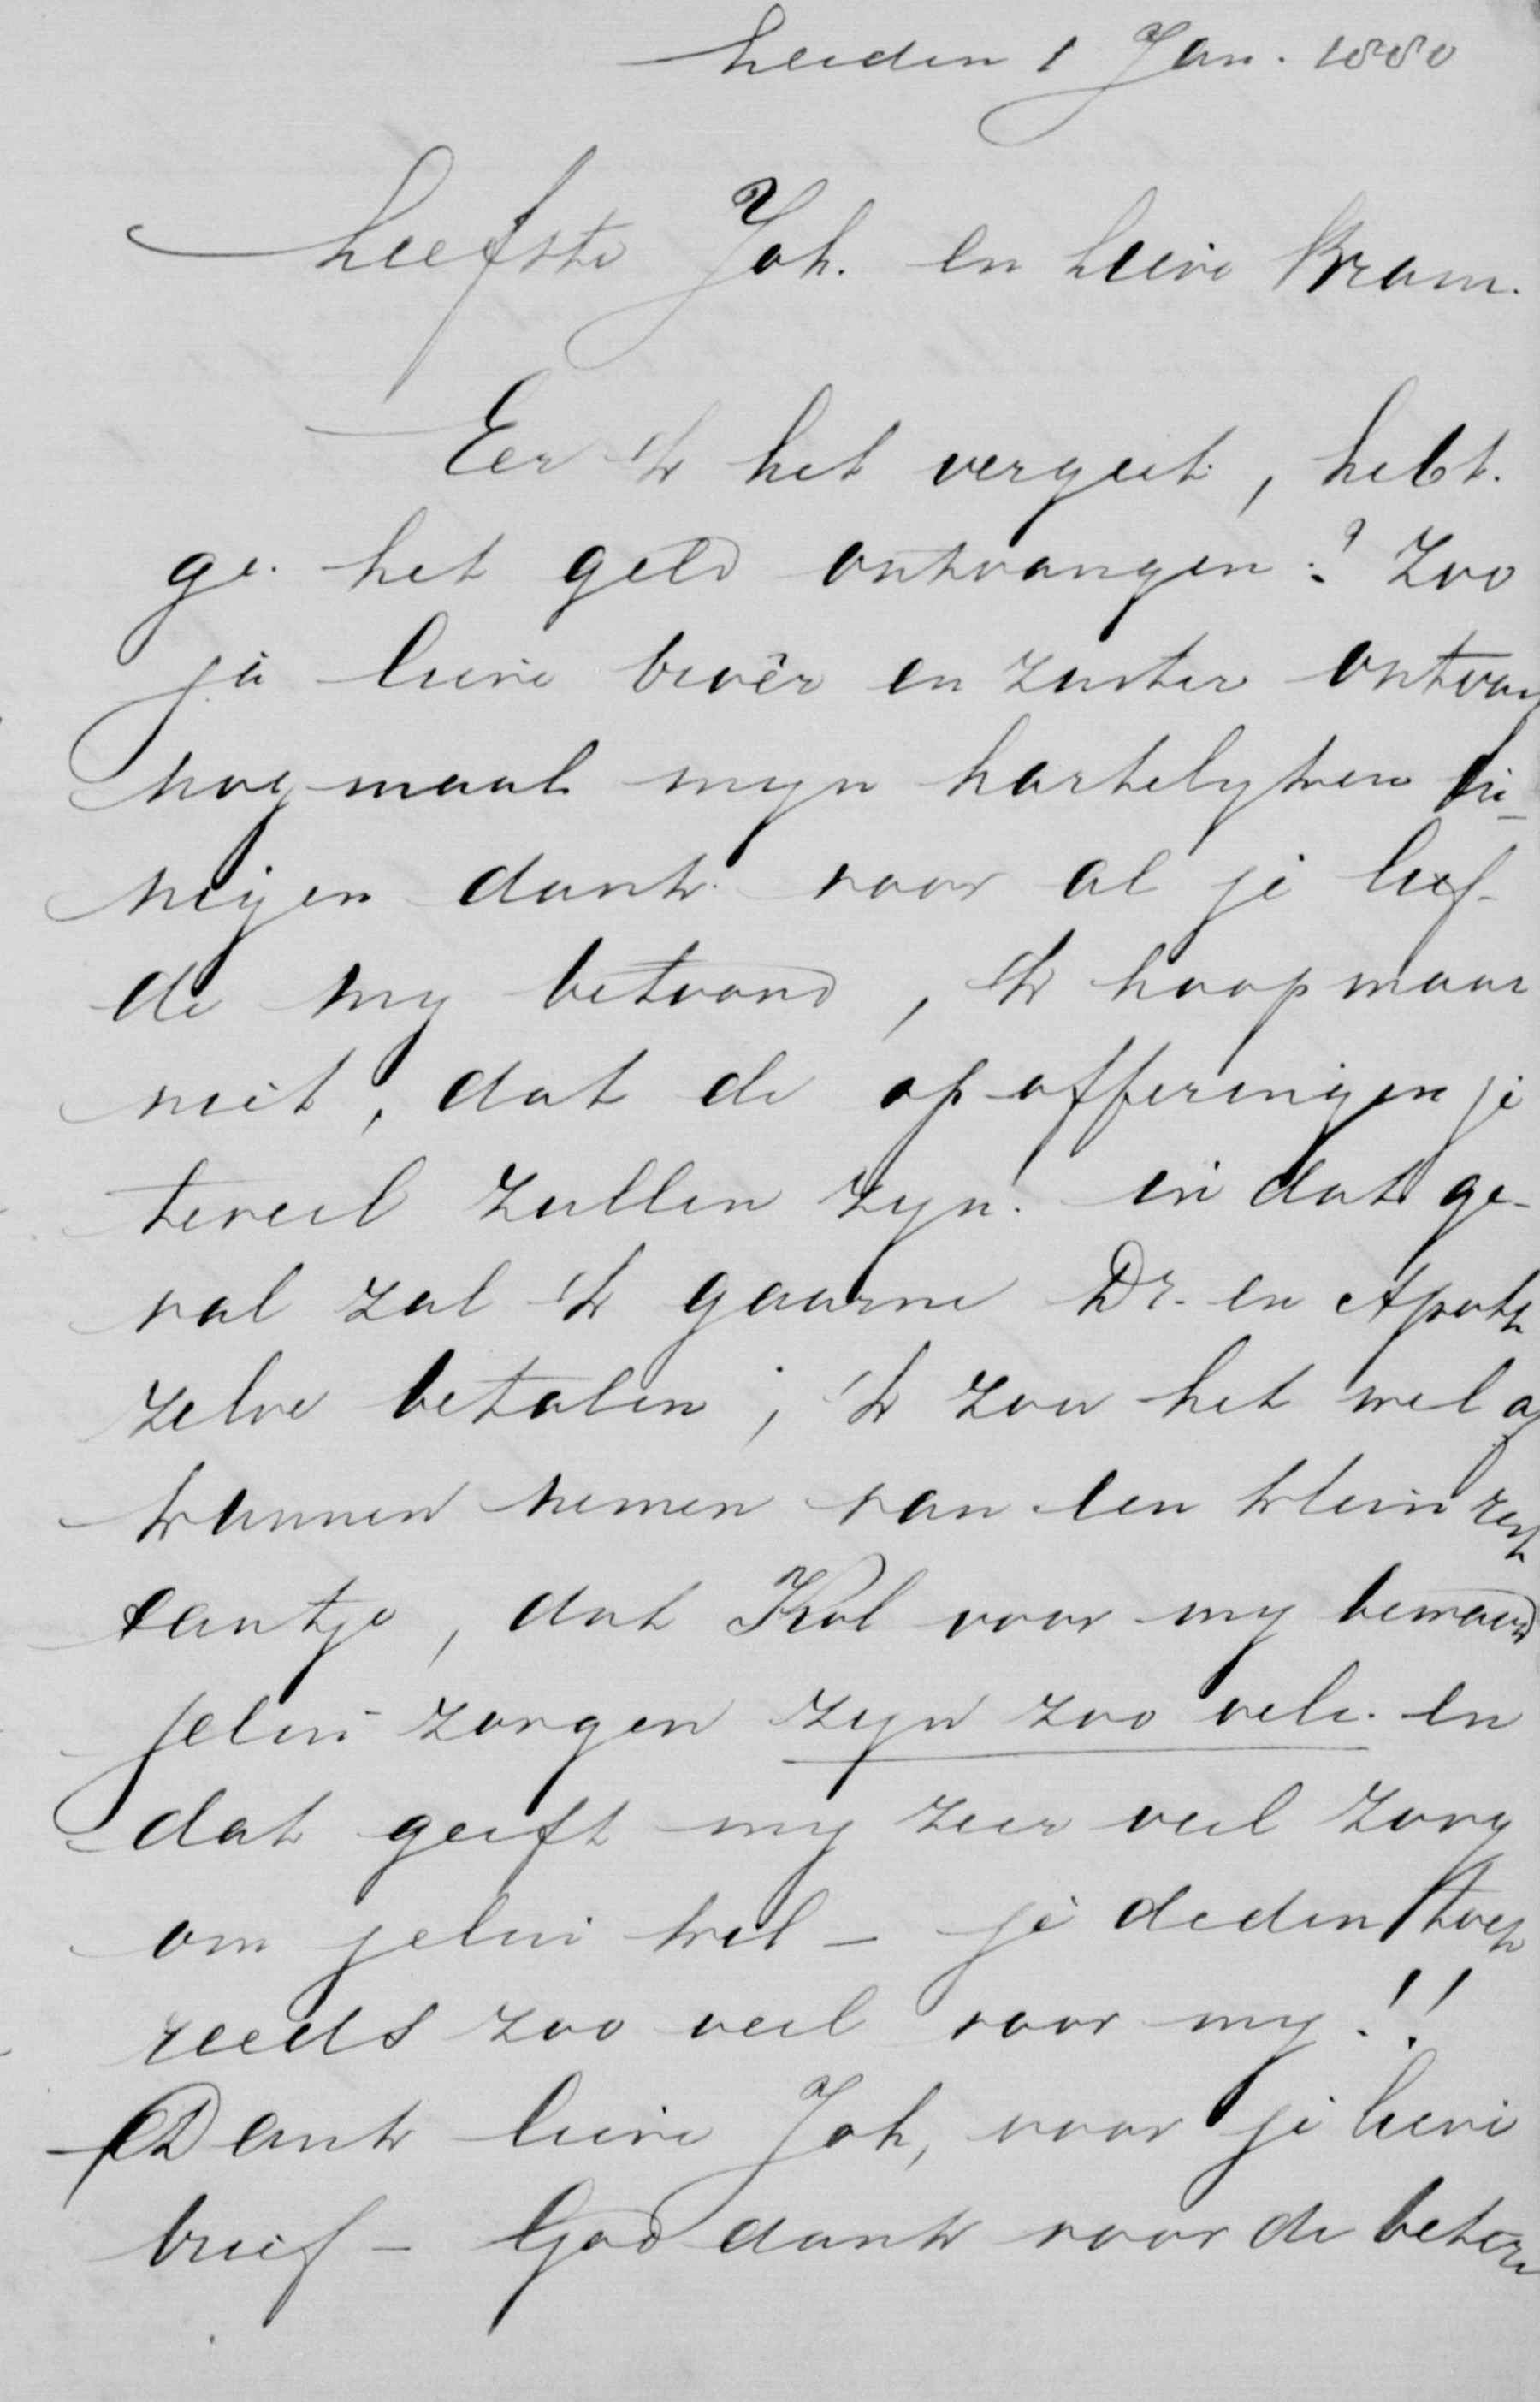 Leiden 1 Jan. 1880
Liefste Joh. en lieve Bram.
Eer ik het vergeet, hebt
ge het geld ontvangen? Zoo
ja lieve broêr en zuster ontvang
nogmaals myn hartelyken in-
nigen dank voor al je lief-
de my betoond, ik hoop maar
niet, dat de opofferingen je
teveel zullen zyn. in dat ge-
val zal ik gaarne Dr. en Apoth
zelve betalen; ik zou het wel af
kunnen nemen van een klein rest
tantje, dat Kol voor my bewaard
jelui zorgen zyn zoo vele en
dat geeft my zeer veel zorg
om jelui wil – je deden toch
reeds zoo veel voor my!!
Dank lieve Joh, voor je lieve
brief – God dank voor de betere